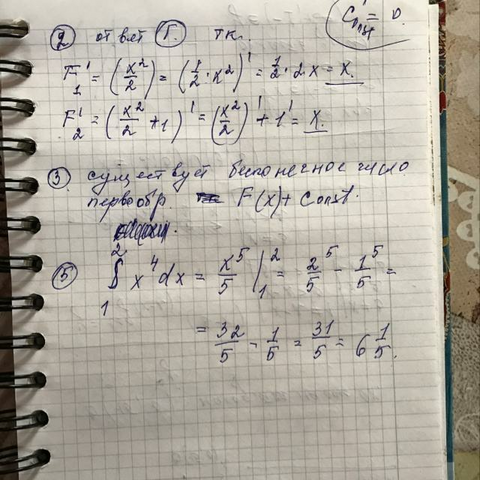 C'onst = 0.
② ответ Г. т.к.
F₁' = (x²/2)' = (1/2 · x²)' = 1/2 · 2x = x.
F₂' = (x²/2 + 1)' = (x²/2)' + 1' = x.
③ существует бесконечное число
первообр. F(x) + Const.
⑤ ∫₁² x⁴dx = x⁵/5 |₁² = 2⁵/5 - 1⁵/5 =
= 32/5 - 1/5 = 31/5 = 6 1/5.